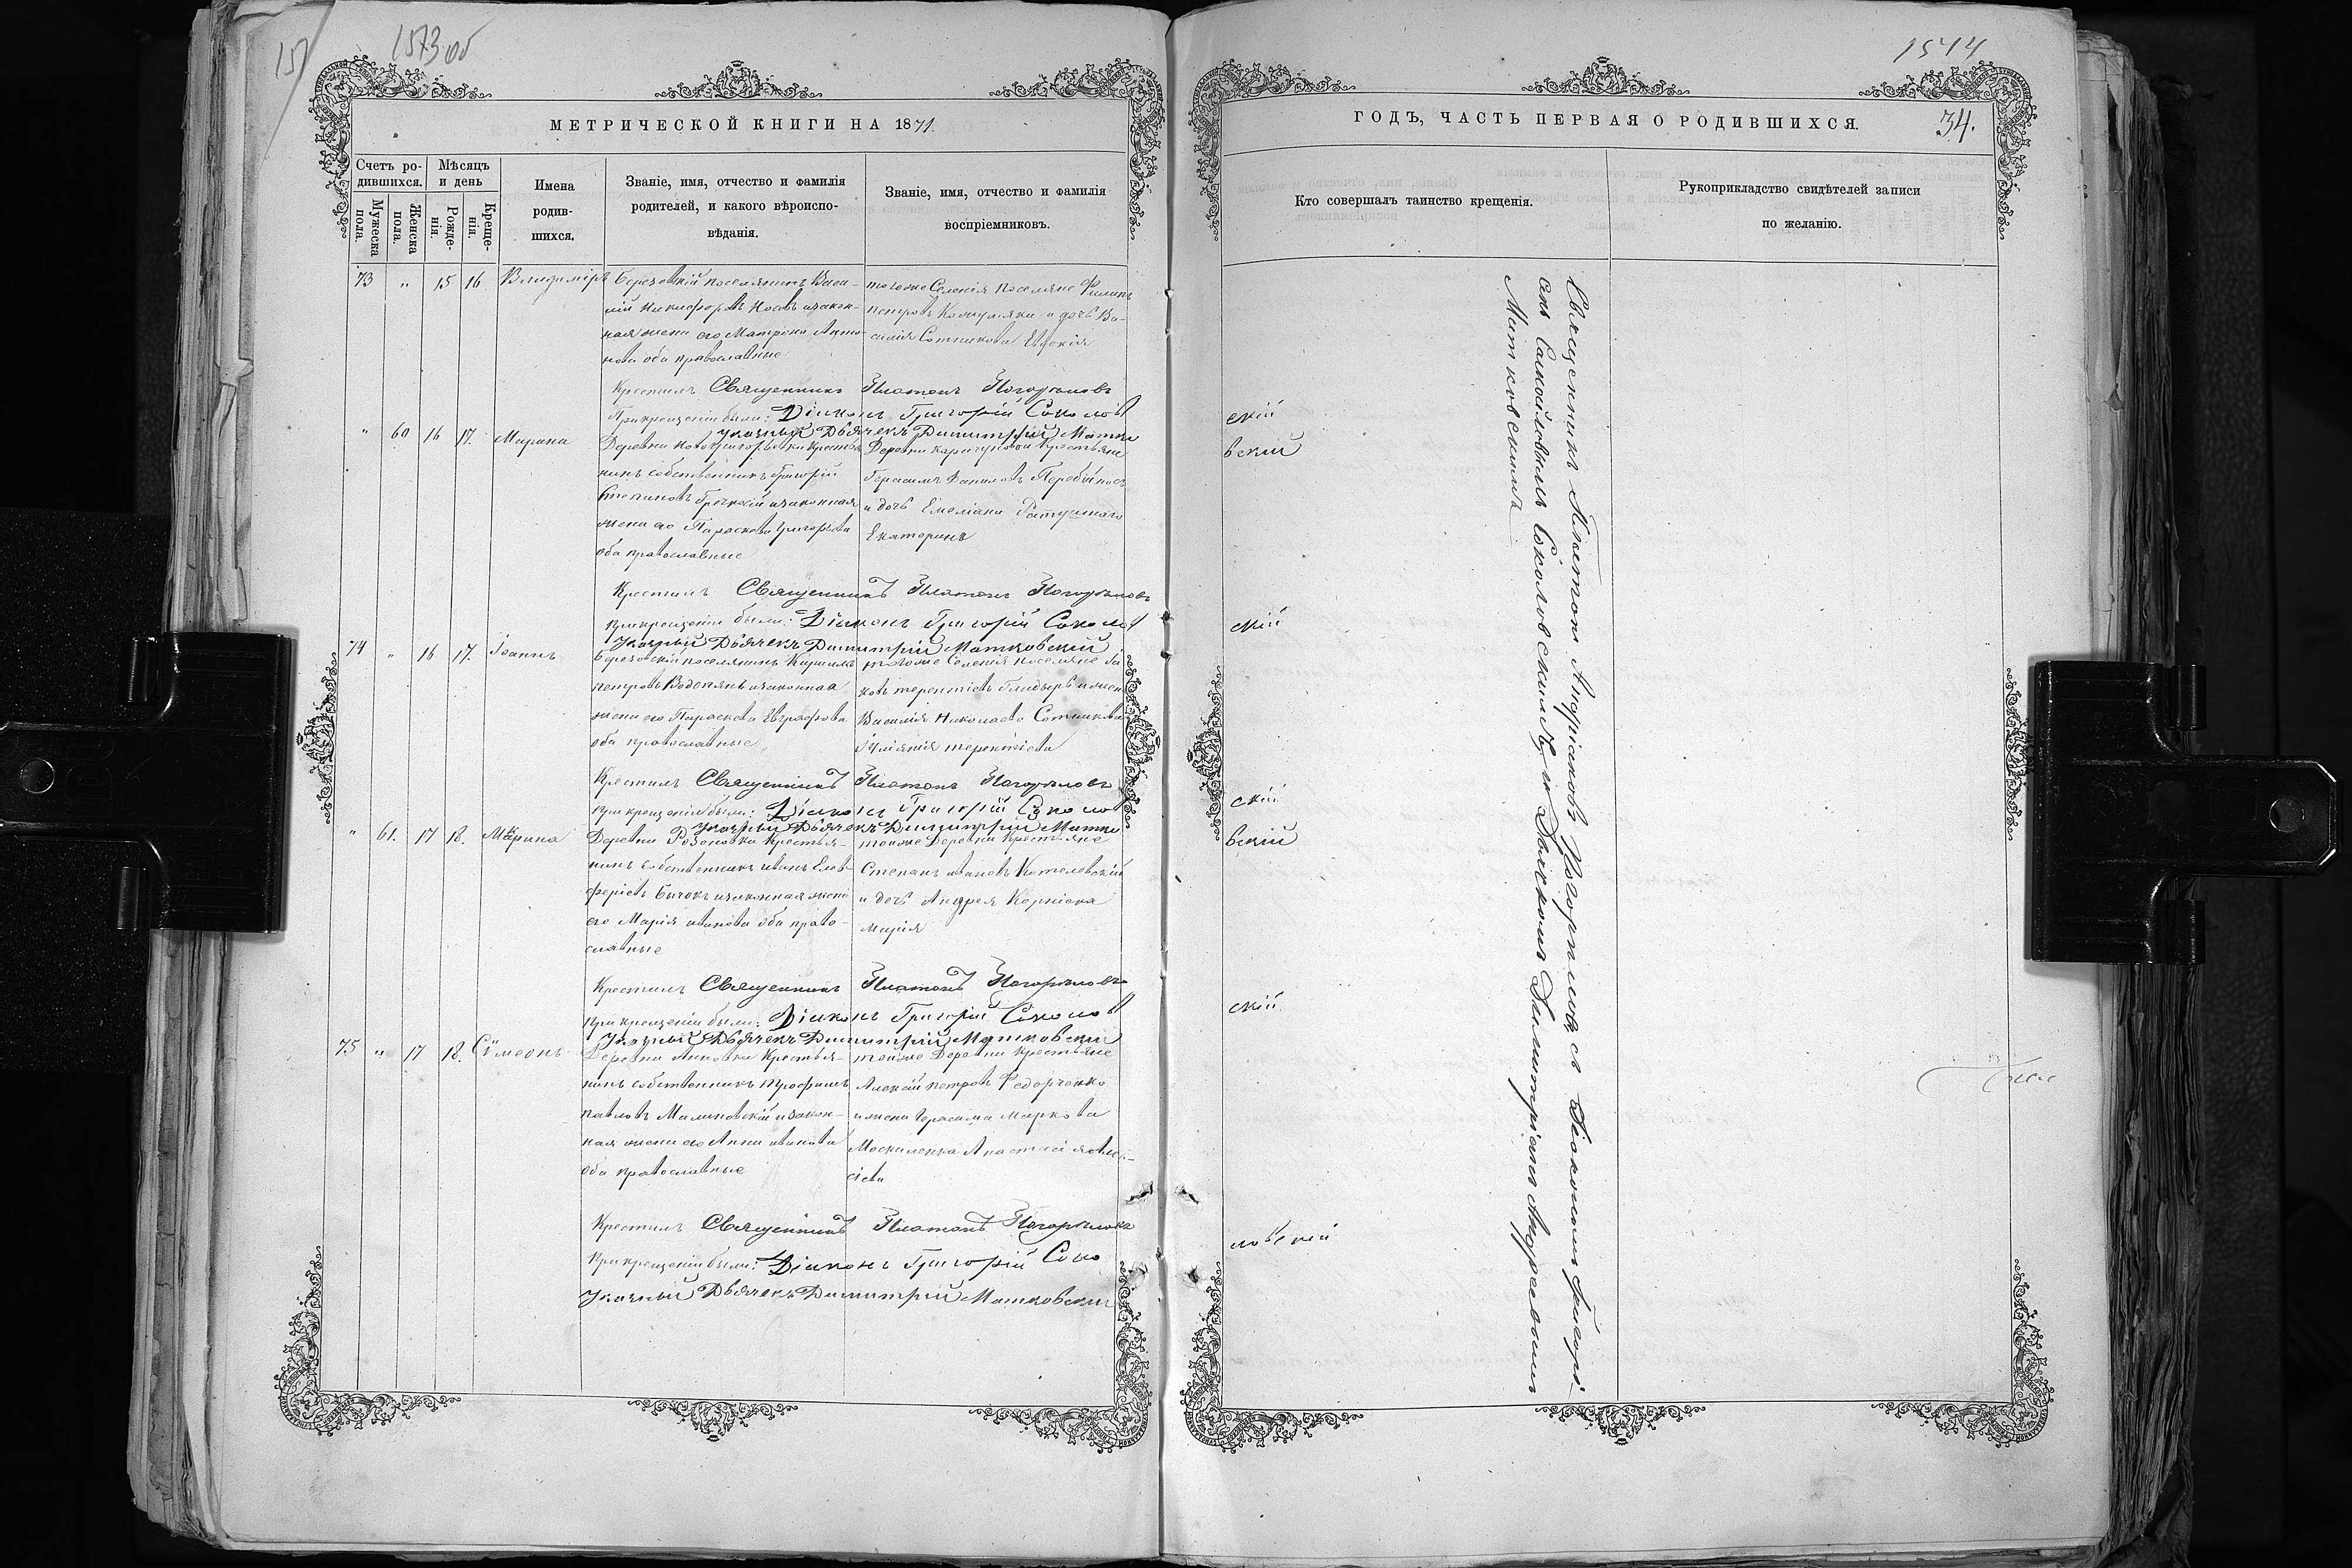 1573 об
МЕТРИЧЕСКОЙ КНИГИ НА 1871.
Счетъ ро-
дившихся.
Мѣсяцъ
и день
Мужеска
пола.
Женска
пола.
Рожде-
нія.
Креще-
нія.
Имена
родив-
шихся.
Званіе, имя, отчество и фамилія
родителей, и какого вѣроиспо-
вѣданія.
Званіе, имя, отчество и фамилія
воспріемниковъ.
73 " 15 16 Владиміръ
Березовскій поселянинъ Васи-
лій Никифоровъ Носовъ и закон-
ная жена его Матрона Анто-
нова оба православные
тогоже Селенія поселяне Филипъ
Петровъ и дочь Ва-
силія Сотникова Евдокія
Крестилъ Священникъ Платонъ Погорѣловъ
При крещеніи были: Діаконъ Григорій Соколов
Указный Дьячекъ Димитрій Матко
" 60 16 17. Марина
Деревни Новогригорьевки крестья
нинъ собственникъ Григорій
Степановъ Гречкосій и законная
жена его Параскева Григорьева
оба православные
Деревни крестьяне
Герасимъ Даниловъ Перебійносъ
и дочь Емеліана Ратушнаго
Екатерина
Крестилъ Священникъ Платонъ Погорѣловъ
При крещеніи были: Діаконъ Григорій Соколов
Указный Дьячекъ Димитрій Матковскій
74 " 16 17. Іоаннъ
Березовскій поселянинъ Кирилъ
Петровъ Водепянъ и законная
жена его Параскева Евграфова
оба православные
тогоже Селенія поселяне Іа
ковъ терентіевъ и жена
Василія Николаева Сотникова
Іуліанія терентіева
Крестилъ Священникъ Платонъ Погорѣловъ
При крещеніи были: Діаконъ Григорій Соколов
Указный Дьячекъ Димитрій Матко
" 61. 17 18. Марина
Деревни Розоновки Крестья-
нинъ собственникъ иванъ Елев-
феріевъ Бычокъ и законная жена
его Марія иванова оба право-
славные
тойже Деревни Крестьяне
Степанъ ивановъ Котелевскій
и дочь Андрея Корніена
Марія
Крестилъ Священникъ Платонъ Погорѣловъ
При крещеніи были: Діаконъ Григорій Соколов
Указный Дьячекъ Димитрій Матковскій
75 " 17 18. Сѵмеонъ
Деревни Анновки Крестья-
нинъ собственникъ трофимъ
павловъ Малиновскій и закон-
ная жена его Анна иванова
оба православные
тойже Деревни Крестьяне
Алексій петровъ Федорченко
и жена Герасима Маркова
Москаленка Анастасія Алек-
сіева
Крестилъ Священникъ Платонъ Погорѣловъ
При крещеніи были: Діаконъ Григорій Соко
Указный Дьячекъ Димитрій Матковскій
1574
34.
ГОДЪ, ЧАСТЬ ПЕРВАЯ О РОДИВШИХСЯ.
Кто совершалъ таинство крещенія.
Рукоприкладство свидѣтелей записи
по желанію.
скій
вскій
скій
скій
вскій
скій
ловскій
Священникъ Платонъ Андріановъ Погорѣловъ съ Діакономъ Григорі-
емъ Самойловымъ Соколовскимъ и Дьячкомъ Димитріемъ Андреевымъ
Матковскимъ